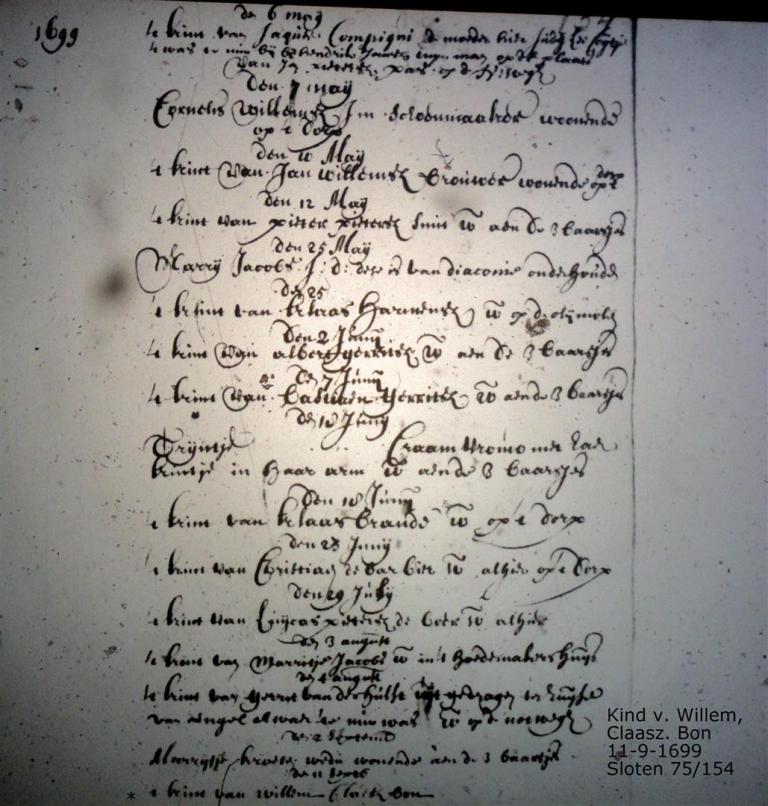 1699
den 6 may
't kint van Jaques Compagni de moeder hier
't was te min bij hendrik op de plaats
van Jan pieterse
den 7 may
Cornelis Willemsz Jm Schoenmaaker wonende
op 't dorp
den 10 May
't kint van Jan willemsz Brouwer wonende op 't dorp
den 12 May
't kint van pieter pietersz Smit W aen de 3 baarsjes
den 25 May
Marry Jacobs J: d: dese is van diaconie onderhoude
den 25
't kint van klaas harmensz W op de olijmole
Den 2 Junij
't kint van albert gerritsz W aen de 3 baarsjes
den 7 Junij
't kint van bastiaen gerritsz W aen de 3 baarsjes
den 18 Junij
Trijntje Craamvrouw met haer
kintje in haar arm W aen de 3 baarsjes
den 18 Junij
't kint van klaas brande W op 't dorp
den 23 Junij
't kint van Christiaen de barbier W alhier op 't dorp
den 29 July
't kint van Luijcas pietersz de boer W alhier
den 3 august
't kint van Marritje Jacobs W in 't hoedemakers huijs
den 4 august
't kint van gerrit vander hulst uijt gedragen ten huijse
van angel alwaer te min was W op de
den 2 Septemb
Marrijtje wedu wonende aen de 3 baarsjes
den 11 Septb
* 't kint van willem Claesz bon
Kind v. Willem,
Claasz. Bon
11-9-1699
Sloten 75/154